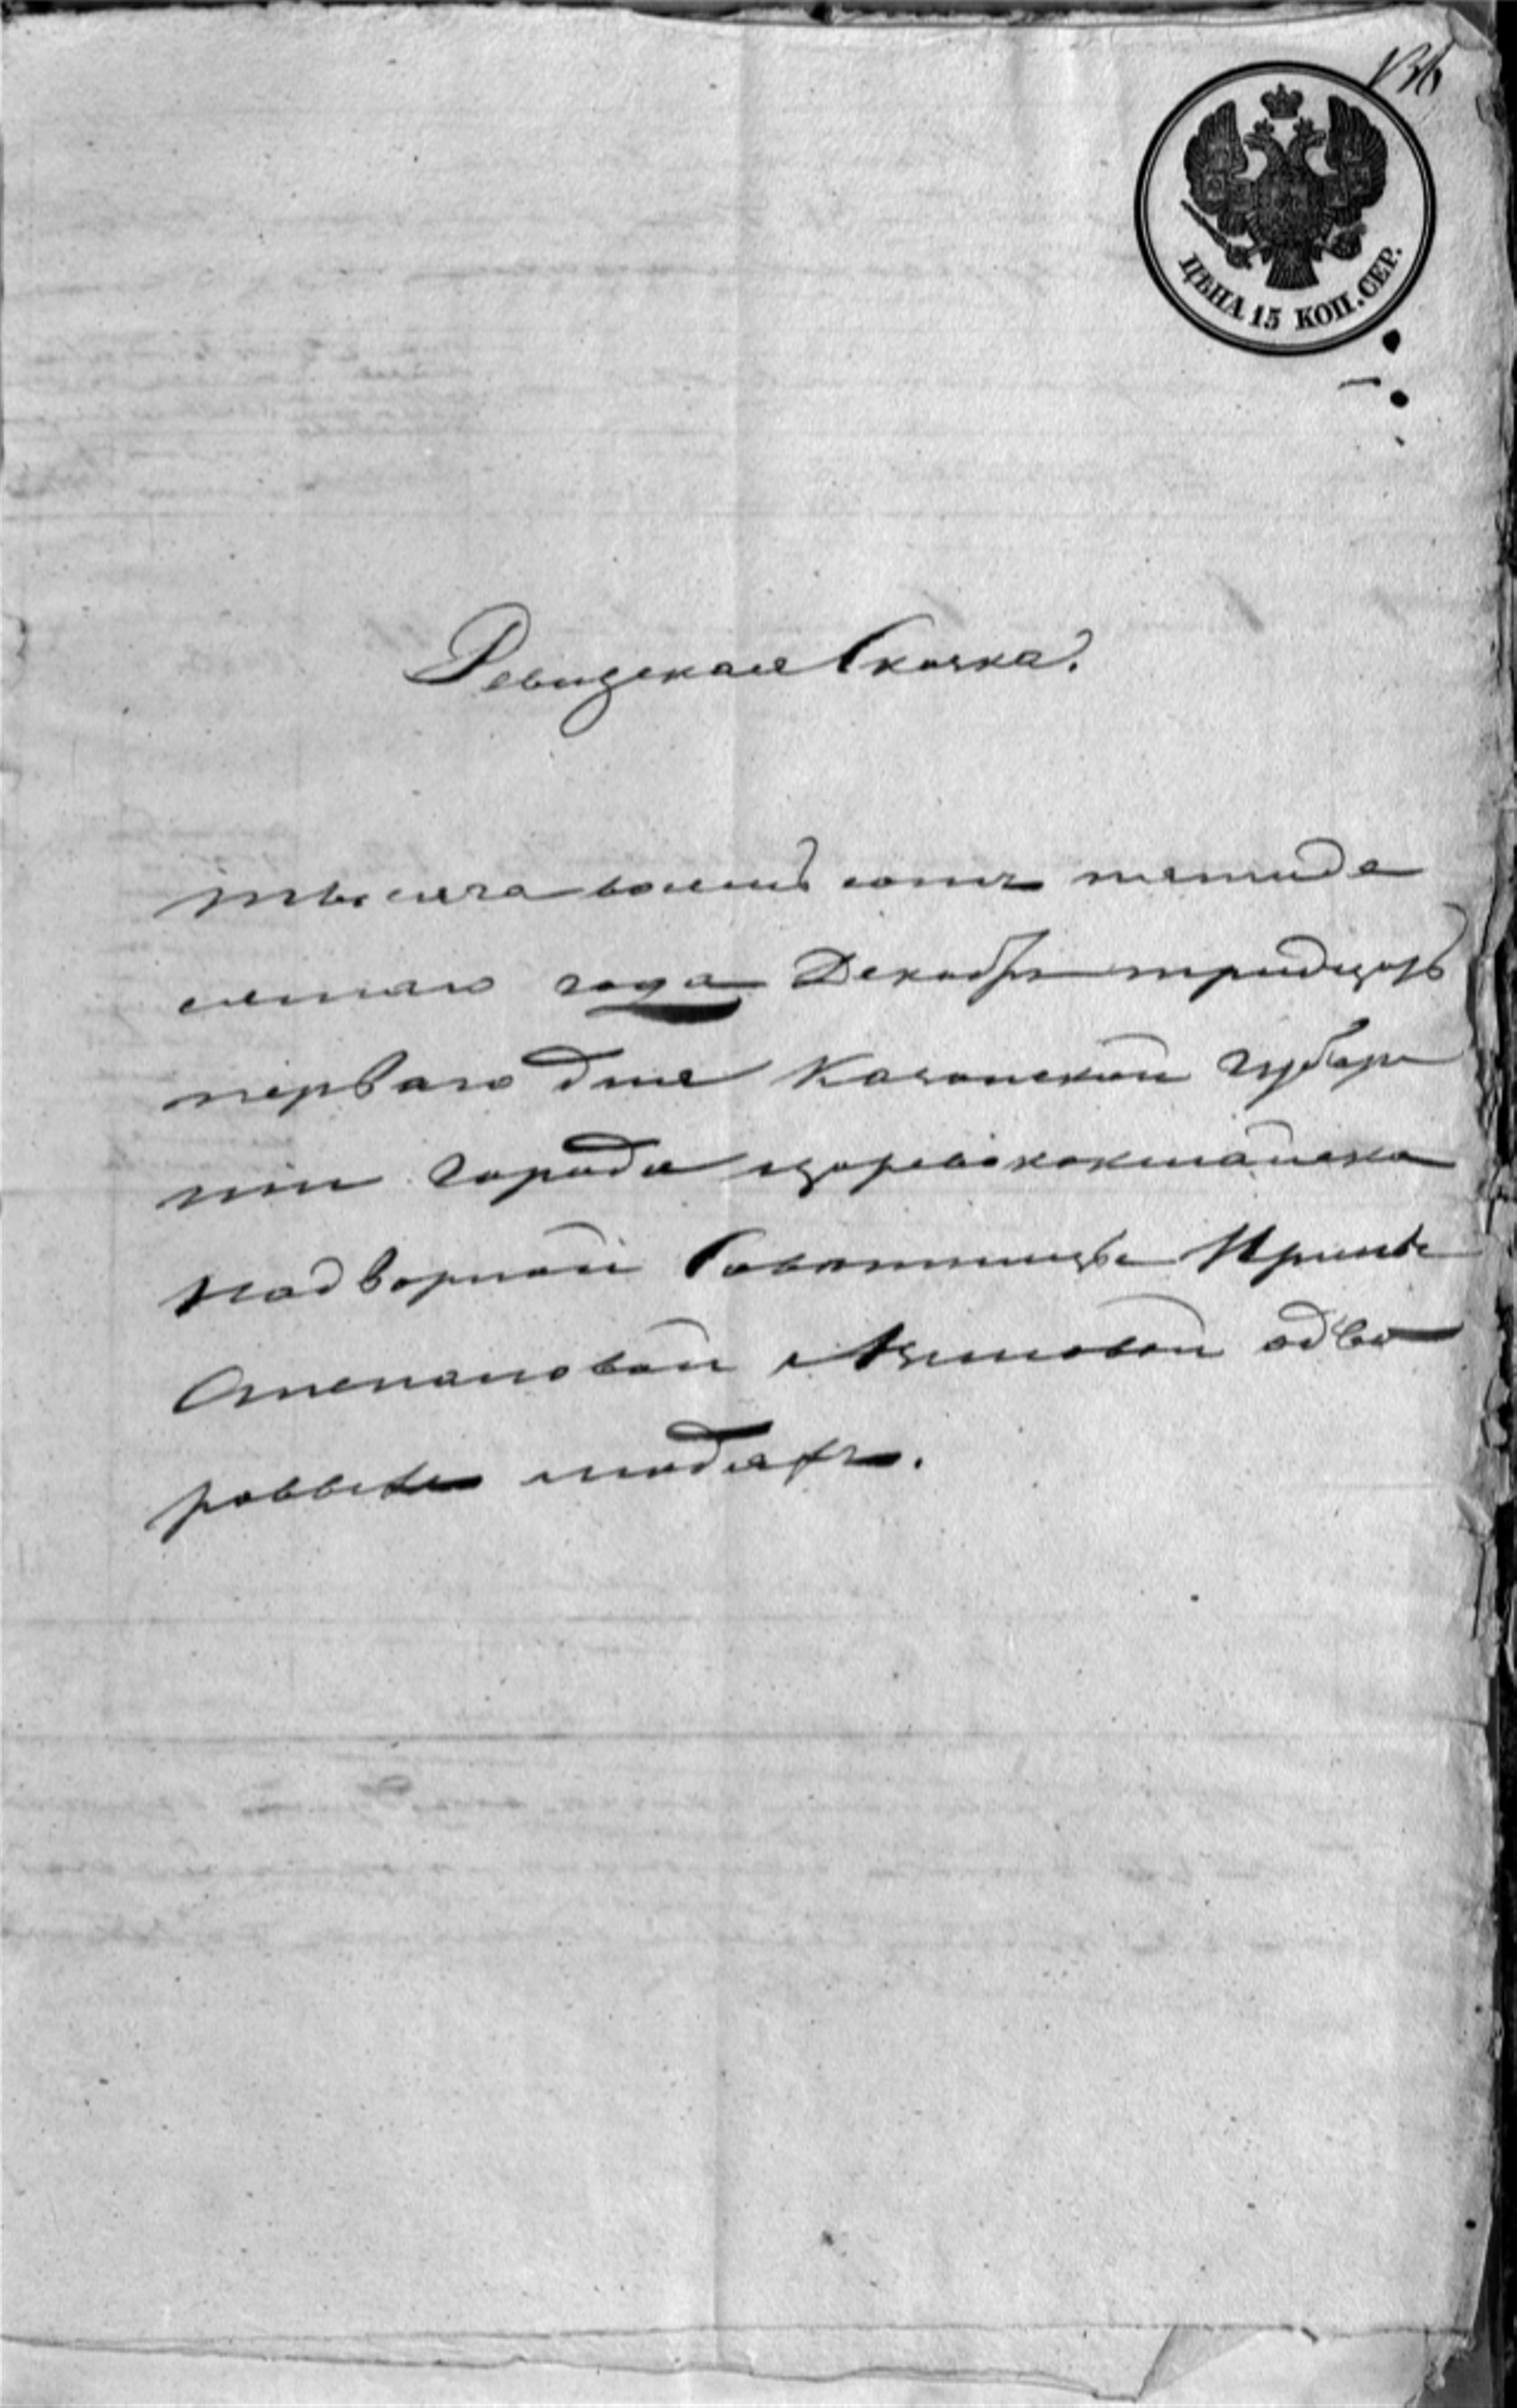 136
ЦѢНА 15 КОП. СЕР.
Ревизская Сказка.
тысяча восемь сотъ пятиде
сятаго года Декабря тридцать
перваго дня Казанской губер
ніи города царевококшайска
Надворной Советницы Ирины
Степановой Азиновой одво
ровыхъ людяхъ.